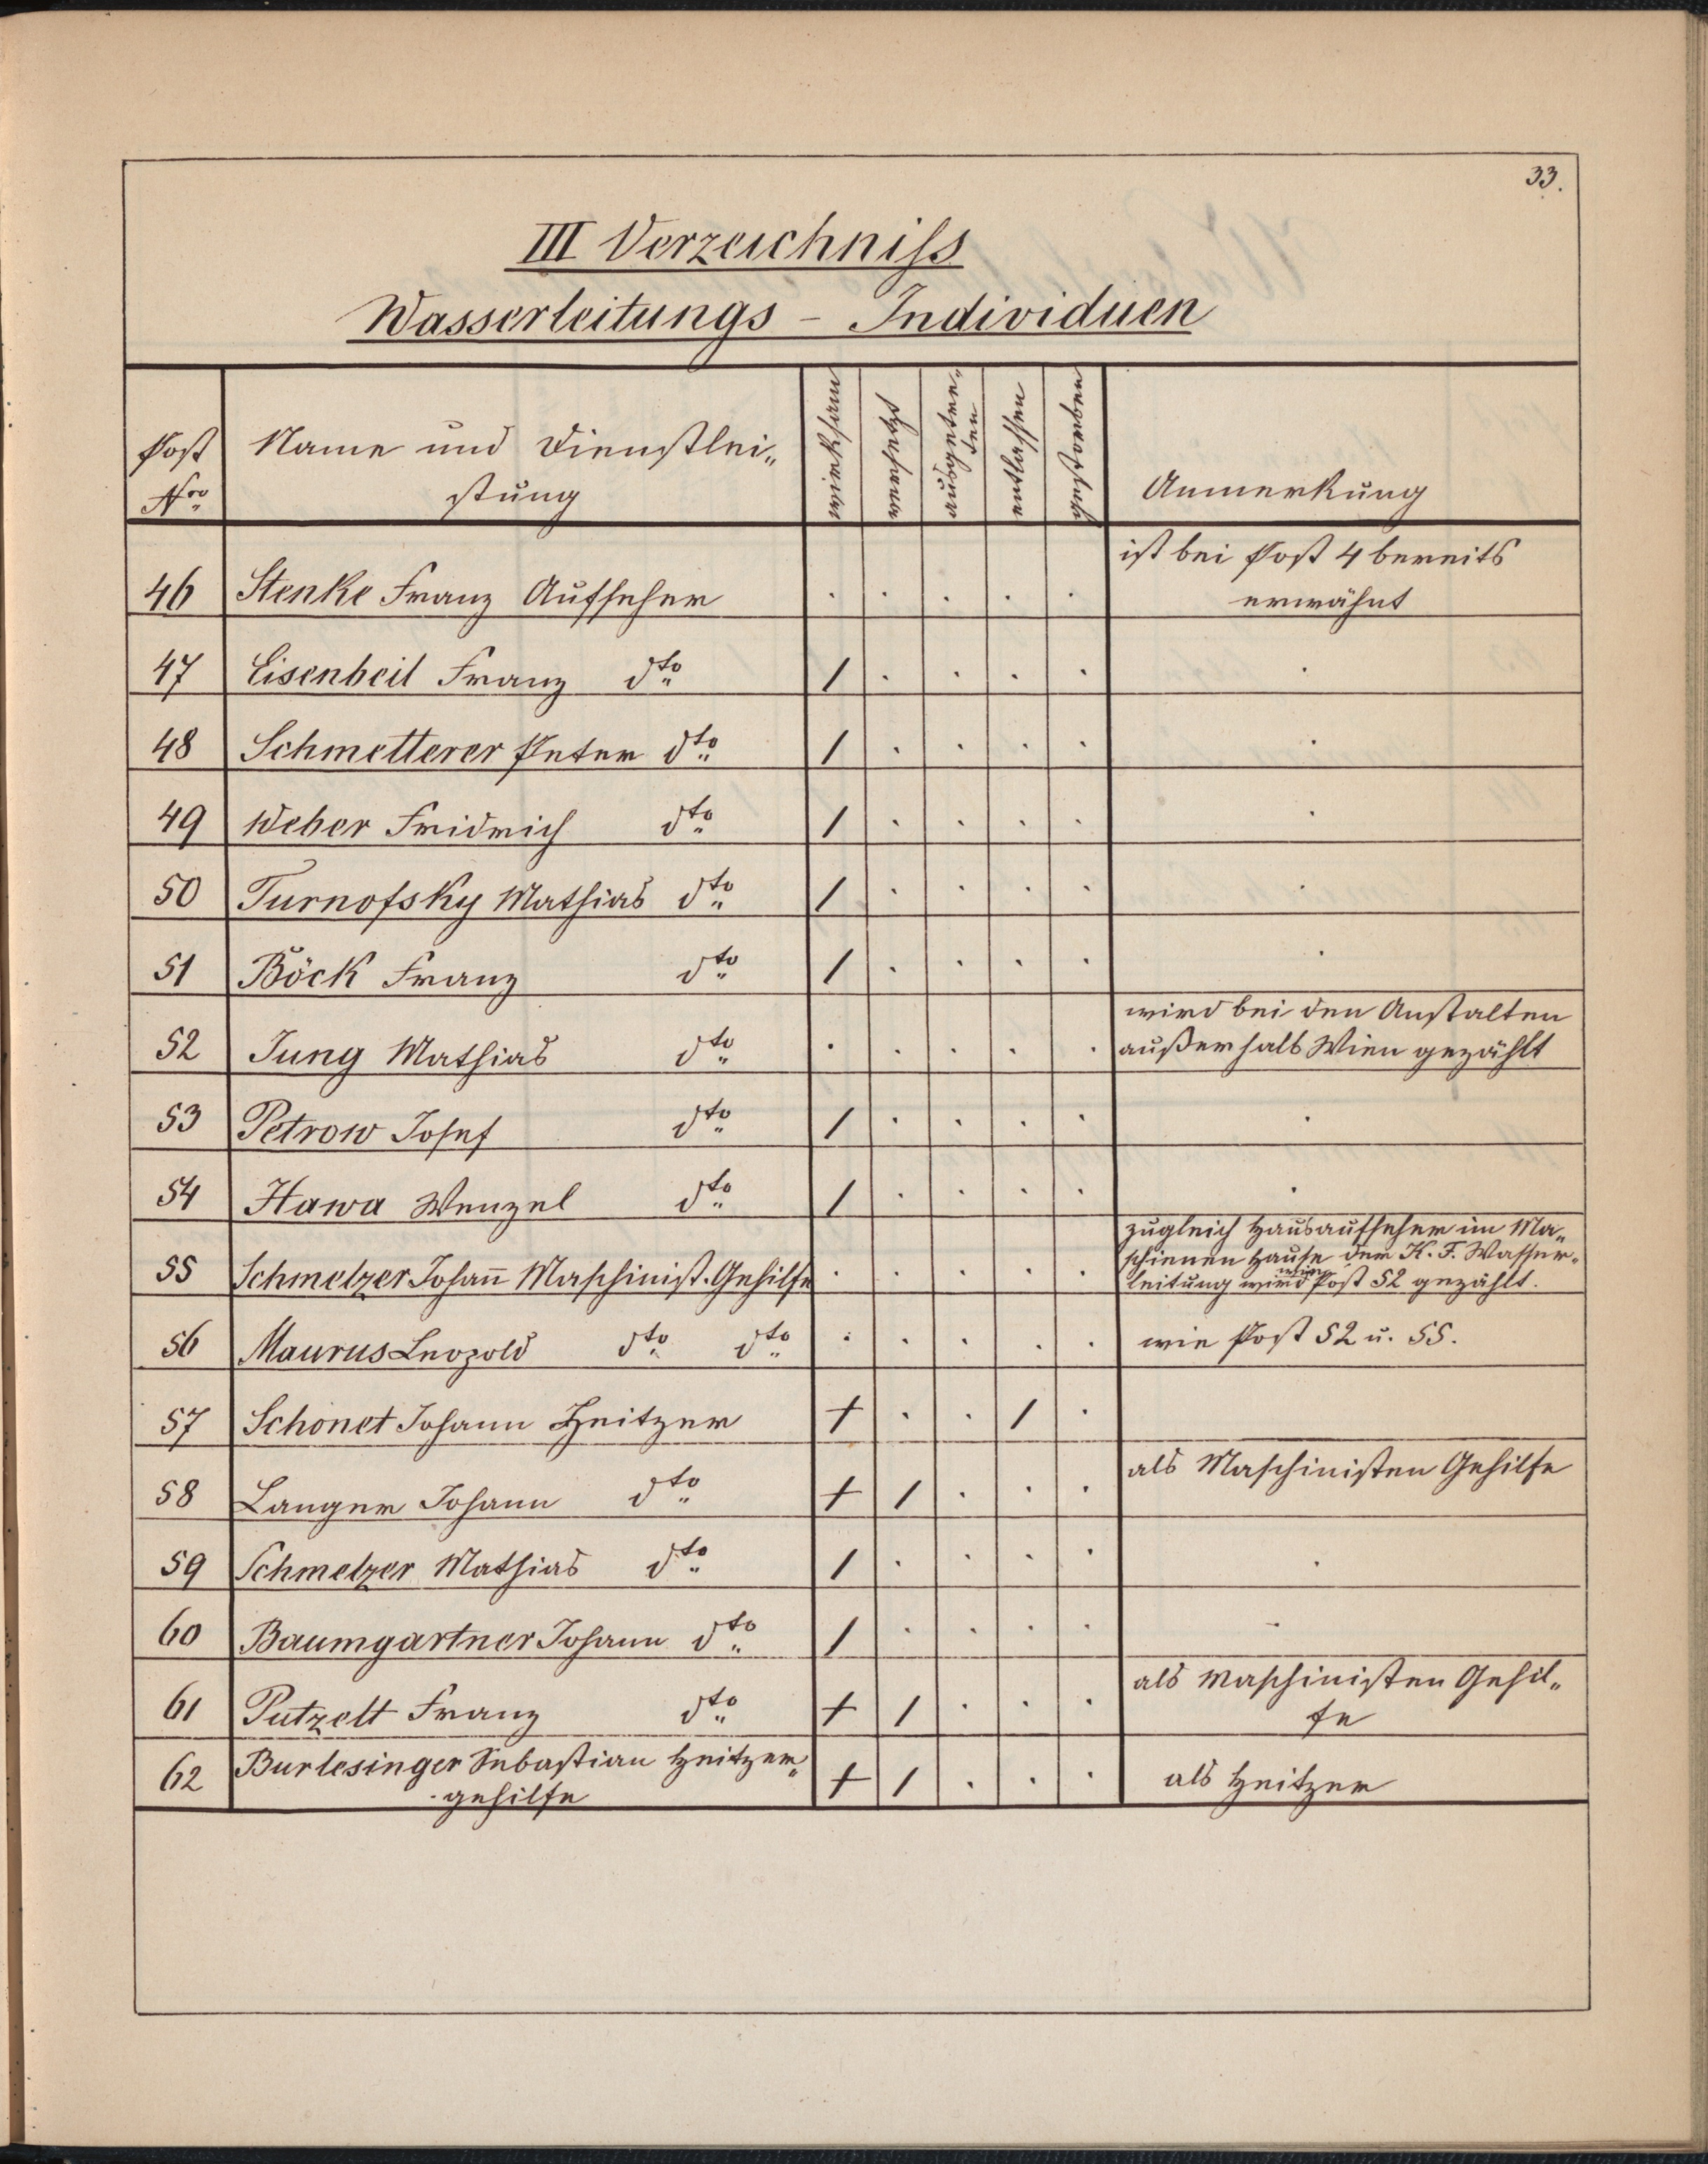 33.
III Verzeichniss
Wasserleitungs - Individuen
Post Nro
Name und Dienstlei„
stung
wirksam
versetzt
ausgetre„
ten
entlassen
gestorben
Anmerkung
46 Stenke Franz Aufseher . . . . . ist bei Post 4 bereits
erwähnt
47 Eisenbeil Franz dto 1 . . . . .
48 Schmetterer Peter dto 1 . . . . .
49 Weber Fridrich dto 1 . . . . .
50 Turnofsky Mathias dto 1 . . . . .
51 Böck Franz dto 1 . . . . .
52 Jung Mathias dto . . . . . wird bei den Anstalten
außerhalb Wien gezählt
53 Petrow Josef dto 1 . . . . .
54 Hawa Wenzel dto 1 . . . . .
55 Schmelzer Johan̄ Maschinist. Gehilfe . . . . . zugleich Hausaufseher im Ma„
schienen Hause der K. F. Wasser„
leitung wird wie Post 52 gezählt.
56 Maurus Leopold dto dto . . . . . wie Post 52 u. 55.
57 Schonet Johann Heitzer + . . 1 .
58 Langer Johann dto + 1 . . . als Maschinisten Gehilfe
59 Schmelzer Mathias dto 1 . . . . .
60 Baumgartner Johann dto 1 . . . . -
61 Putzelt Franz dto + 1 . . . als Maschinisten Gehil„
fe
62 Burlesinger Sebastian Heitzer„
gehilfe + 1 . . . als Heitzer